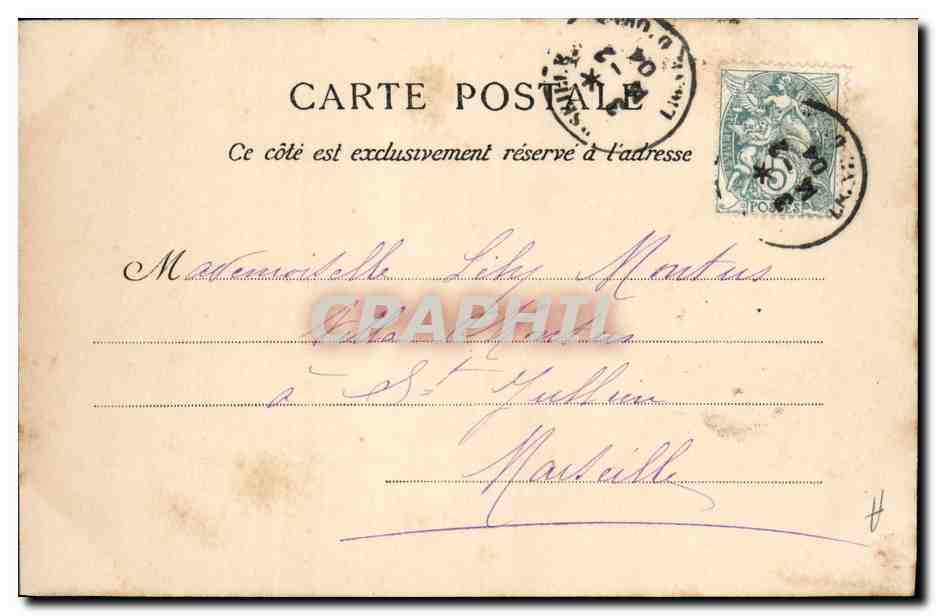 CARTE POSTALE
Ce côté est exclusivement réservé à l'adresse
5
POSTES
Mademoiselle Lily Montus
Villa Montus
à St Jullien
Marseille
CRAPHTI
04
04